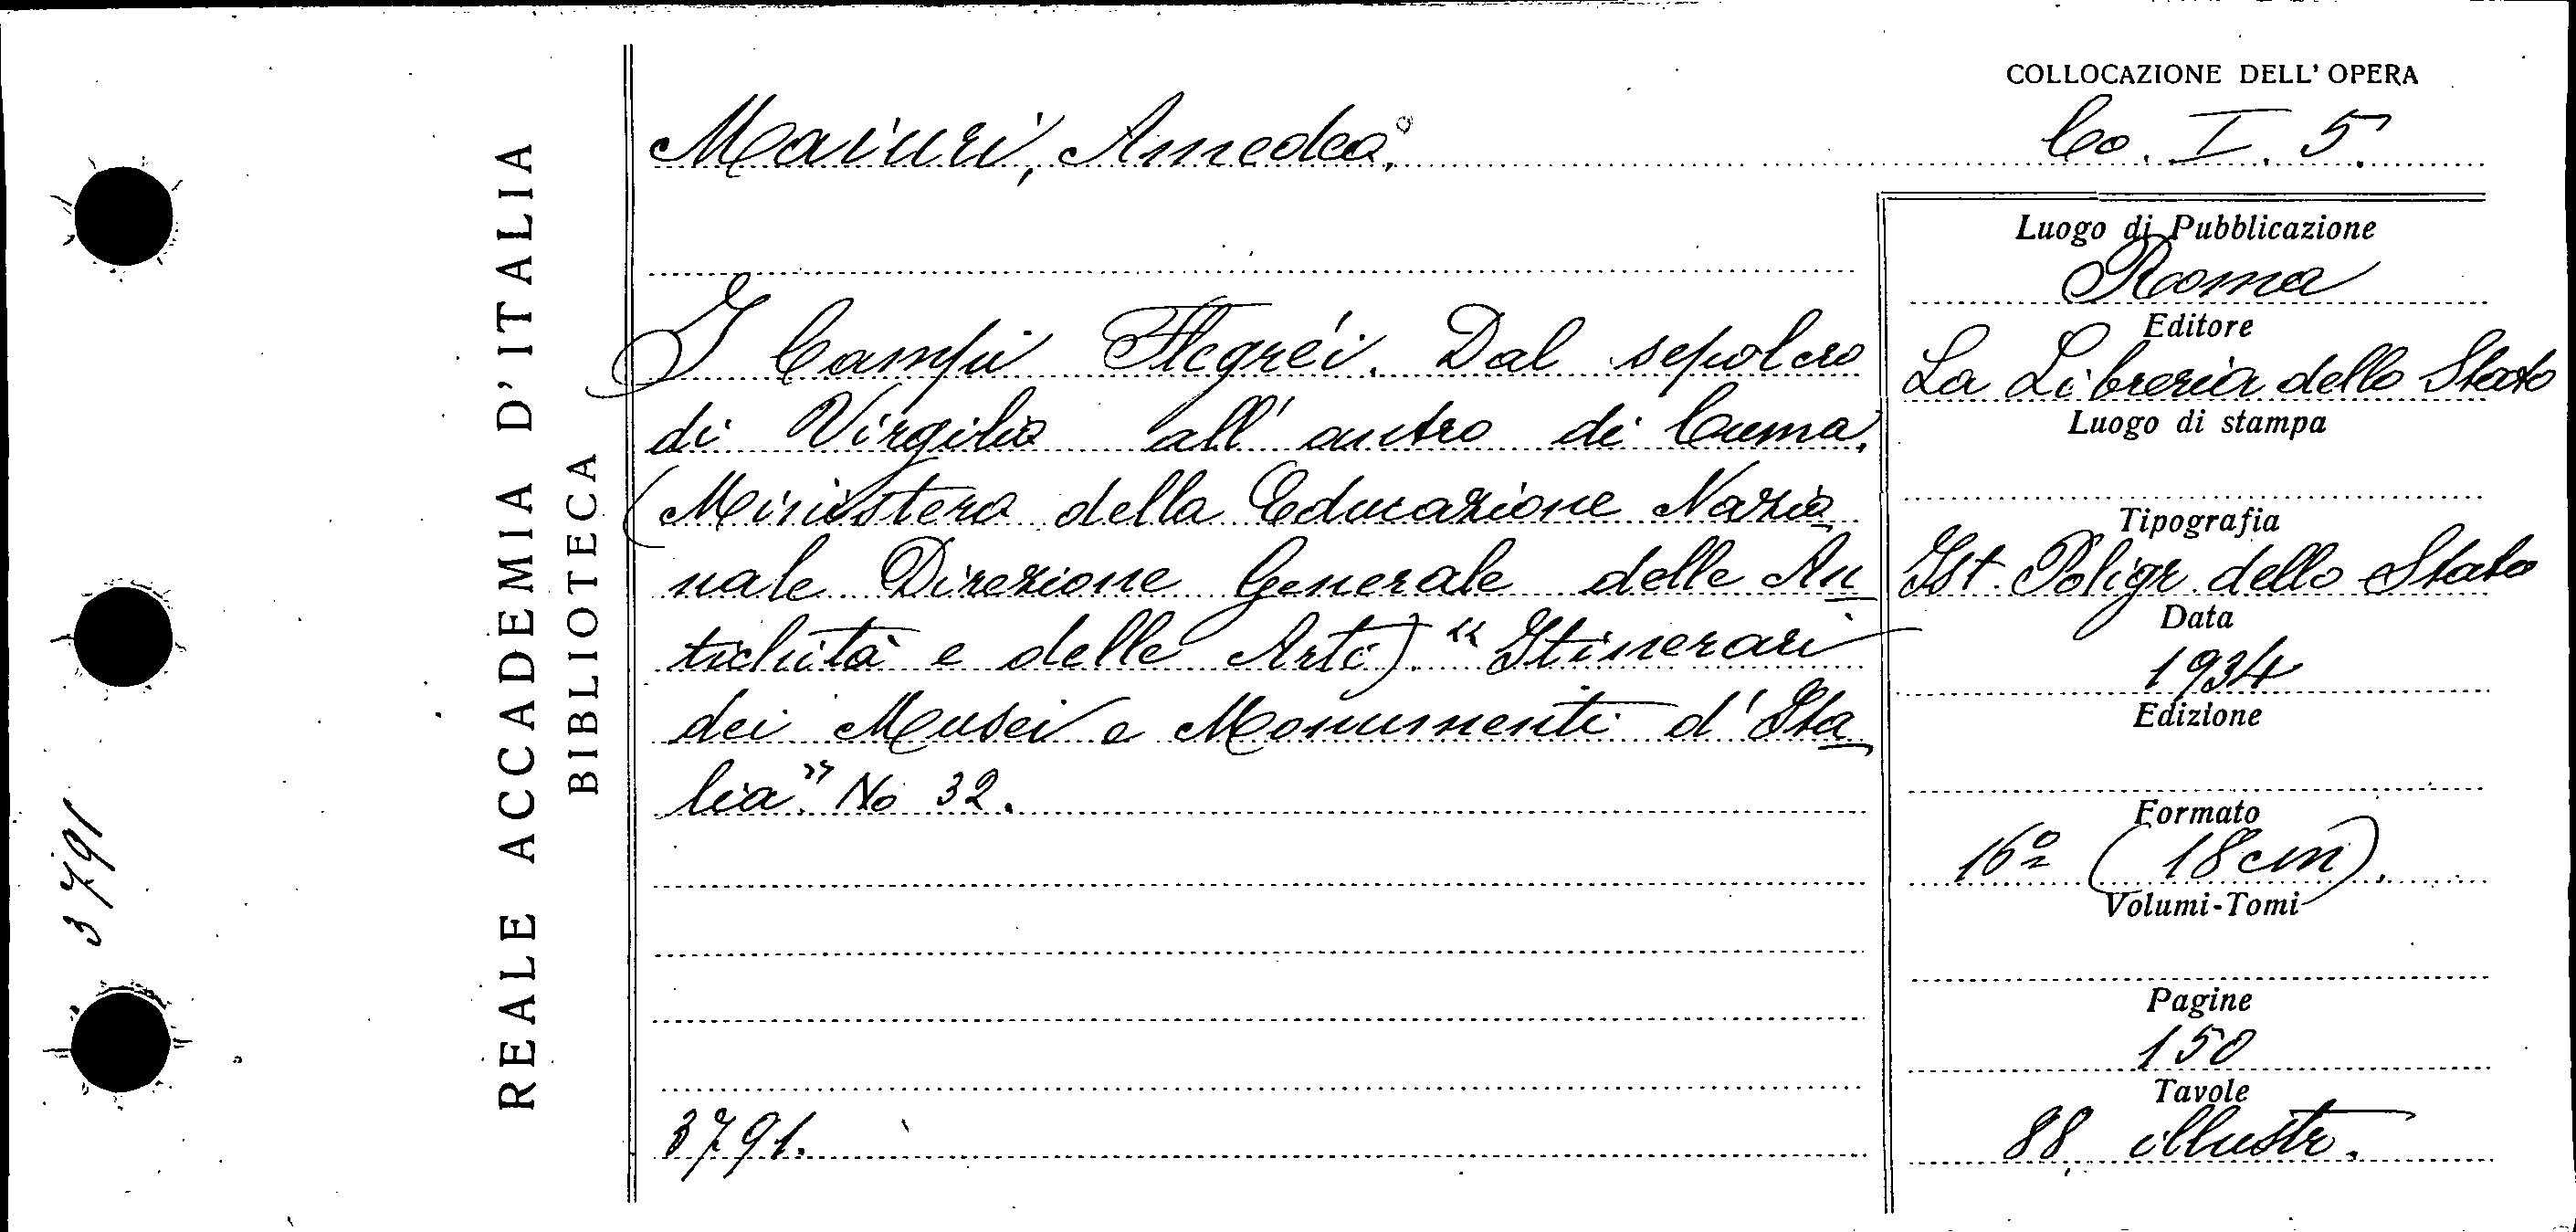 3791
REALE ACCADEMIA D'ITALIA
BIBLIOTECA
Maiuri, Amedeo.
I Campi Flegrei. Dal sepolcro
di Virgilio all' antro di Cuma.
(Ministero della Educazione Nazio
nale Direzione Generale delle An
tichità e delle Arti) "Itinerari
dei Musei e Monumenti d'Ita
lia". No 32.
3791.
COLLOCAZIONE DELL' OPERA
Co. I. 5.
Luogo di Pubblicazione
Roma
Editore
La Libreria dello Stato
Luogo di stampa
Tipografia
Ist. Poligr. dello Stato
Data
1934
Edizione
Formato
16º (18 cm).
Volumi-Tomi
Pagine
150
Tavole
88 illustr.